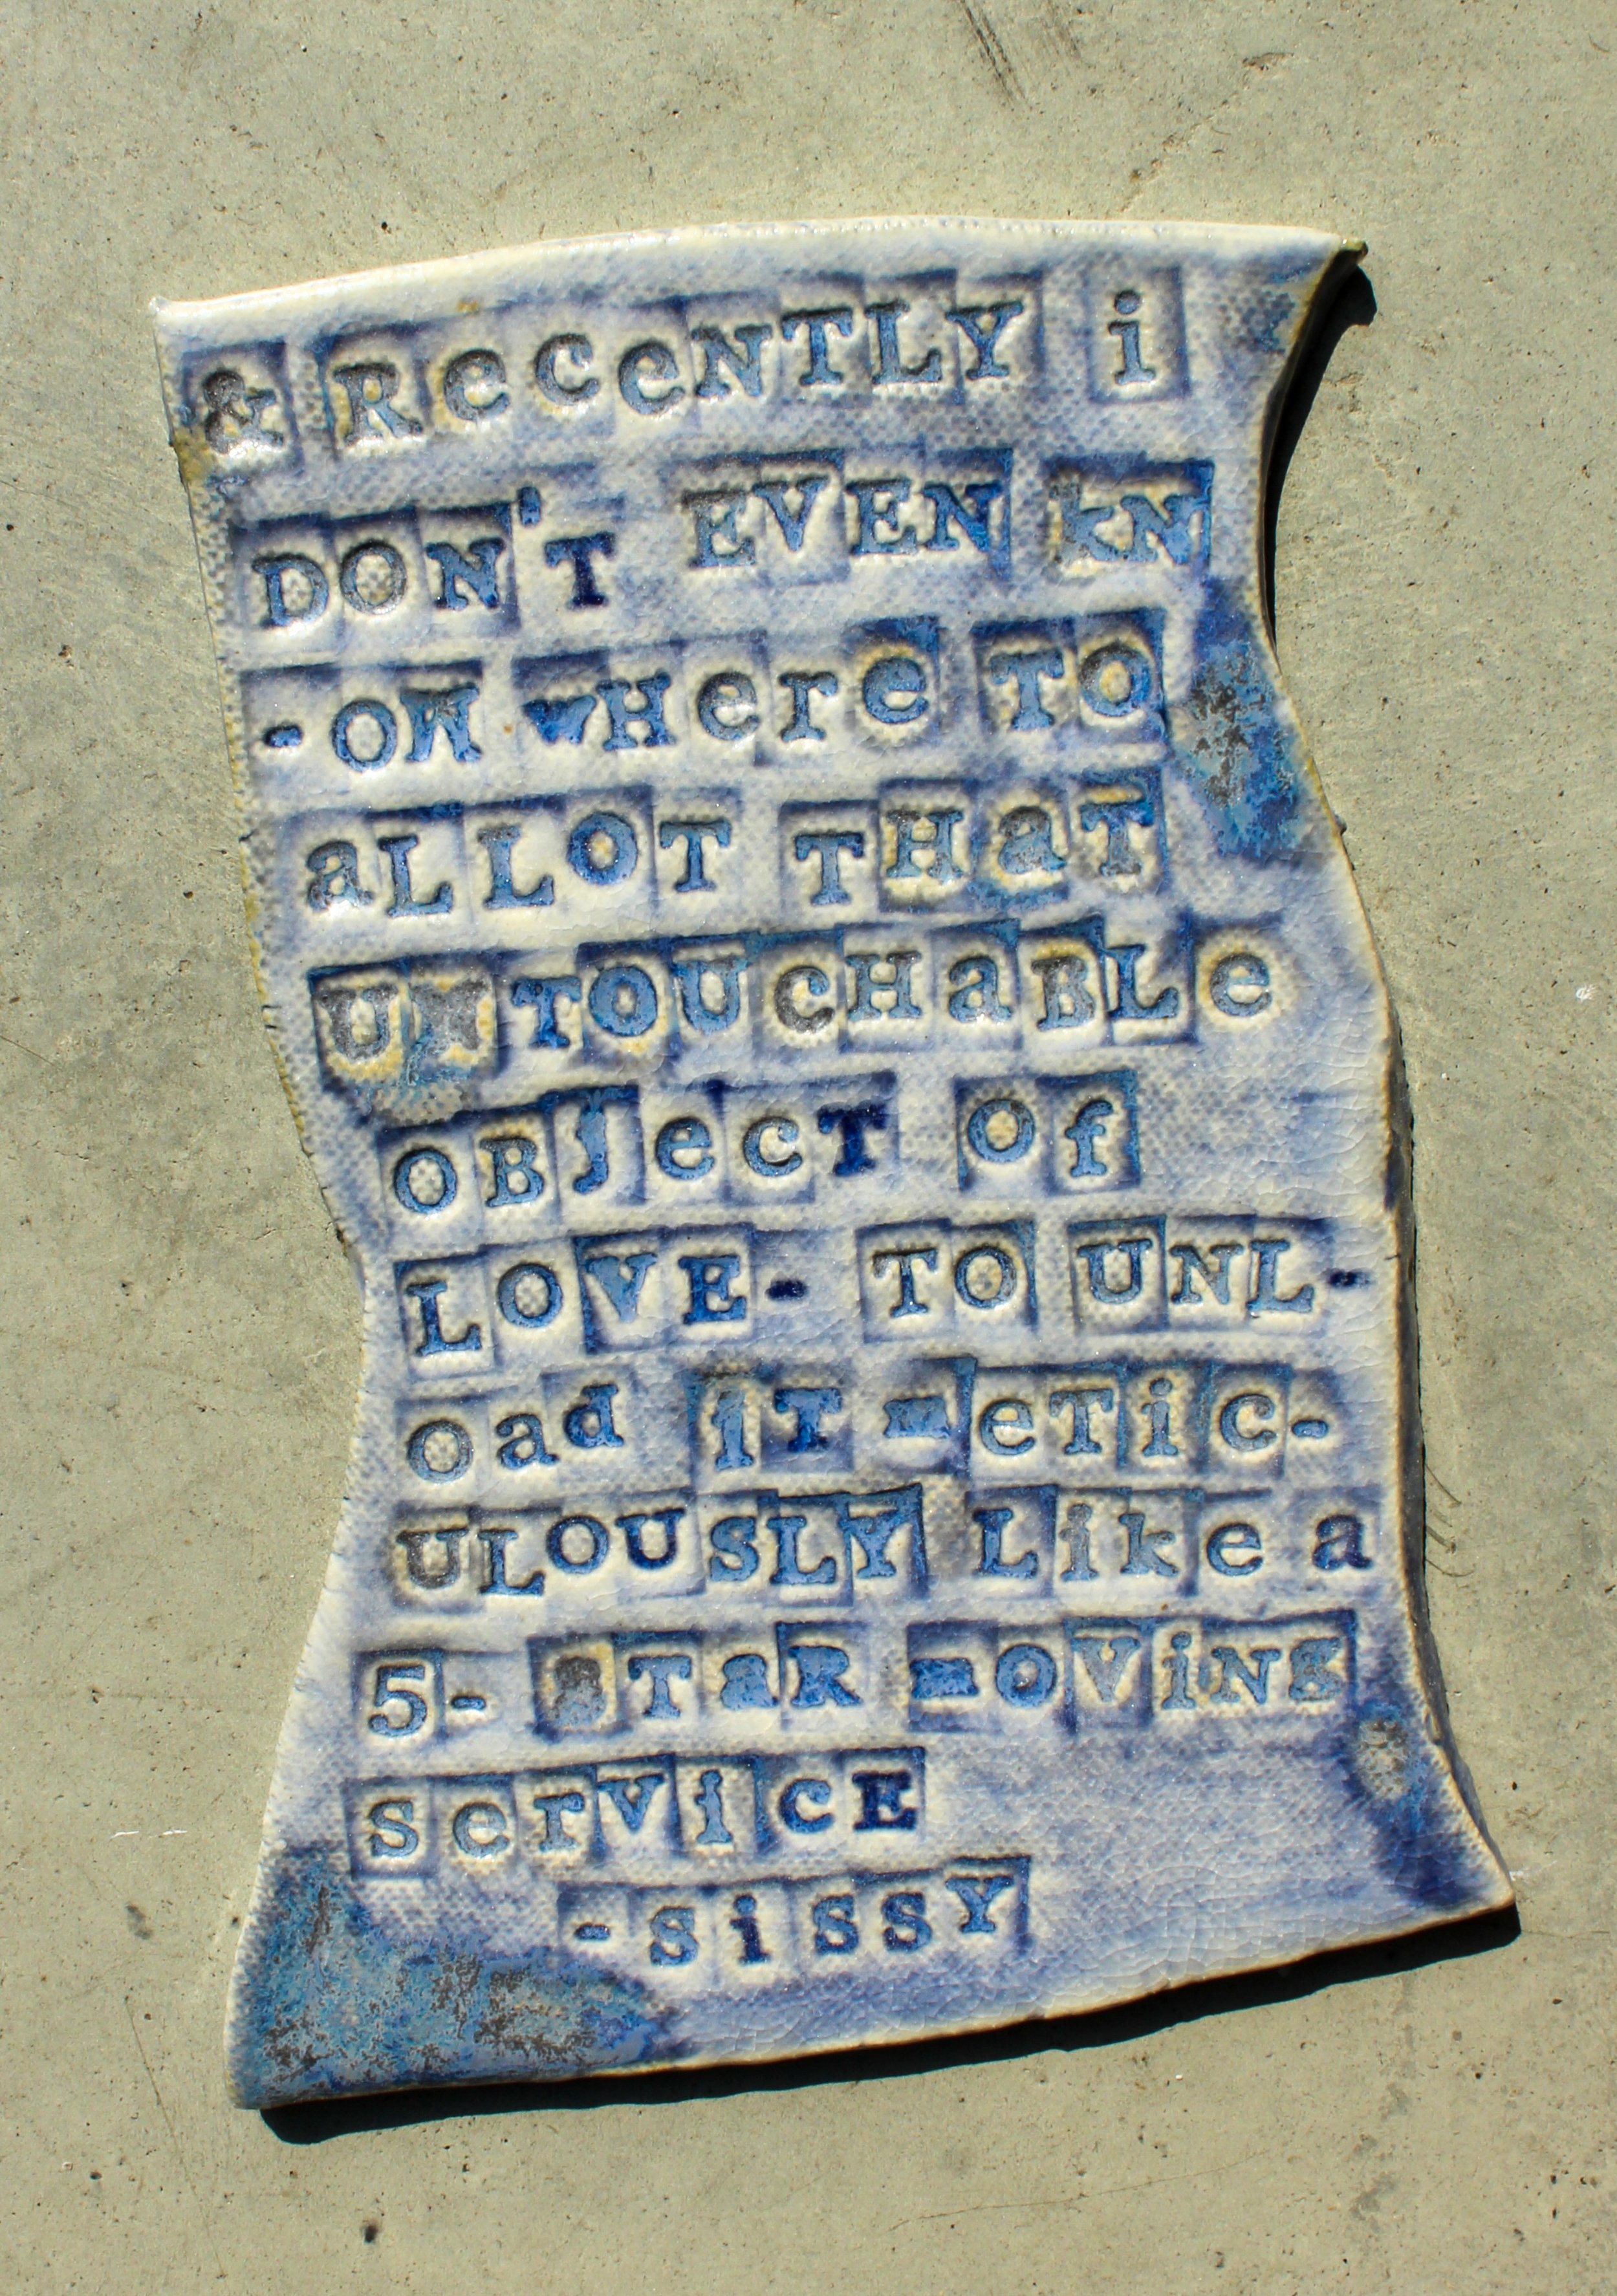 & RecenTLY i
DON'T EVEN kN
-OW wHere TO
aLLOT THaT
UNTOUcHaBLe
OBJecT Of
LOVE- TO UNL-
Oad iT meTic-
ULOUSLY Like a
5-sTaR mOViNg
serViCE
-SiSSY